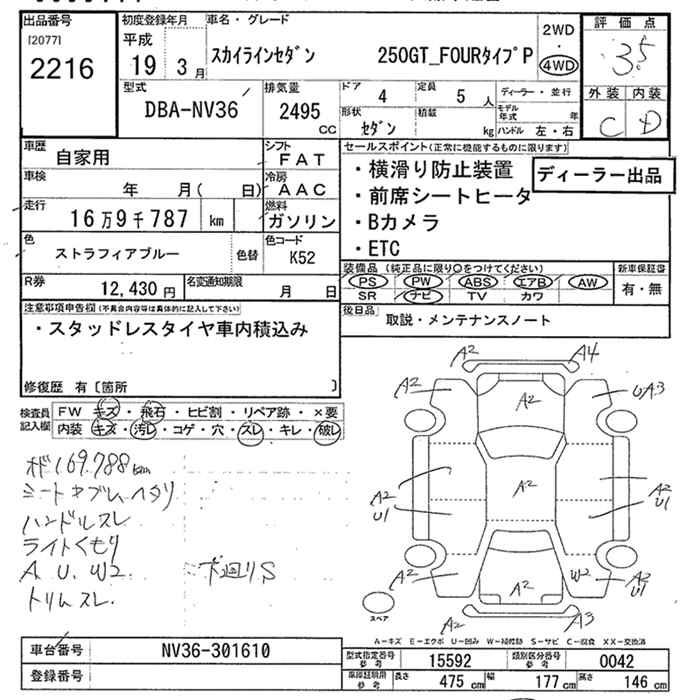 出品番号
[2077]
2216
初度登録年月
平成
19 3月
車名・グレード
スカイラインセダン 250GT_FOURタイプP
2WD
・
4WD
評価点
3.5
外装 内装
C D
型式
DBA-NV36
排気量
2495
CC
ドア 4
定員 5 人
形状 セダン
積載 kg
ディーラー・並行
モデル年式 年
ハンドル 左・右
車歴
自家用
シフト
FAT
車検
年 月( 日)
冷房
AAC
走行
16万9千787 km
燃料
ガソリン
色
ストラフィアブルー
色替
色コード
K52
R券
12,430円
名変通知期限
月 日
セールスポイント(正常に機能するものに限ります)
・横滑り防止装置
・前席シートヒータ
・Bカメラ
・ETC
ディーラー出品
装備品(純正品に限り○をつけてください)
PS PW ABS エアB AW
SR ナビ TV カワ
新車保証書
有・無
後日品
取説・メンテナンスノート
注意事項申告欄(不具合内容等は具体的に記入して下さい)
・スタッドレスタイヤ車内積込み
修復歴 有〔箇所 〕
検査員
記入欄
FW キズ・飛石・ヒビ割・リペア跡・×要
内装 キズ・汚レ・コゲ・穴・スレ・キレ・破レ
169.788km
ハンドルスレ
ライトくもり
A. U. W2.
下廻りS
トリムスレ.
A2
A4
A2
A2
UA3
A2
U1
A2
A2
U1
A2
A2
W2
A2
U1
A2
A3
スペア
A-キズ E-エクボ U-凹み W-補修跡 S-サビ C-腐食 XX-交換済
車台番号
NV36-301610
登録番号
型式指定番号
参考
15592
類別区分番号
参考
0042
車庫証明用
参考
長さ 475 cm
幅 177 cm
高さ 146 cm